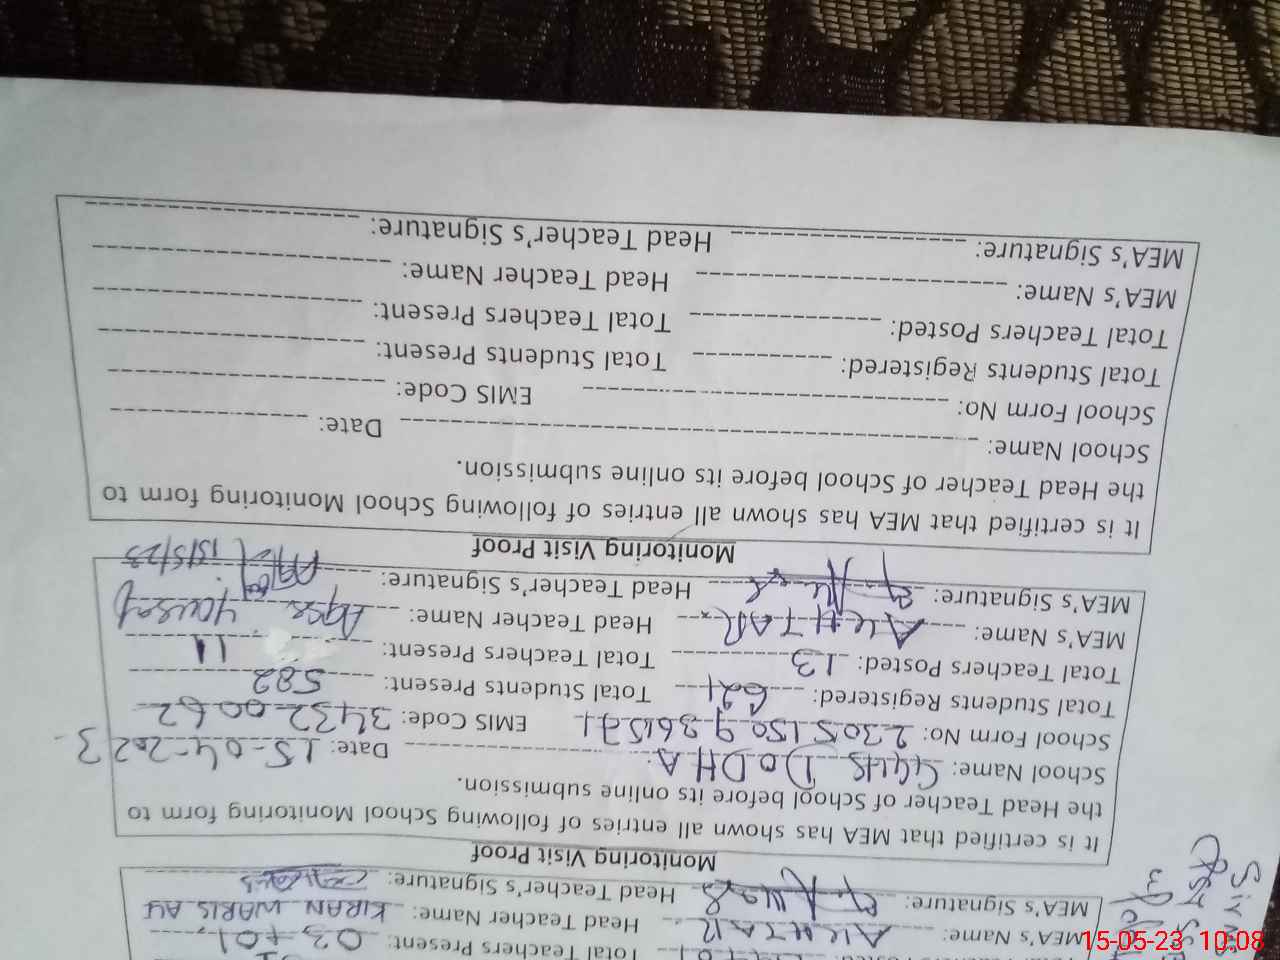 Total Teachers Present: 03+01
MEA's Name: AKHTAR Head Teacher Name: KIRAN WARIS ALI
MEA's Signature: Head Teacher's Signature:
Monitoring Visit Proof
It is certified that MEA has shown all entries of following of School Monitoring form to
the Head Teacher of School before its online submission.
School Name: GGHS DODHA Date: 15-04-2023
School Form No: EMIS Code: 34320062
Total Students Registered: 621 Total Students Present: 582
Total Teachers Posted: 13 Total Teachers Present: 11
MEA's Name: AKHTAR Head Teacher Name: Aqsa Yousaf
MEA's Signature: Head Teacher's Signature: 15/5/23
Monitoring Visit Proof
It is certified that MEA has shown all entries of following of School Monitoring form to
the Head Teacher of School before its online submission.
School Name: Date:
School Form No: EMIS Code:
Total Students Registered: Total Students Present:
Total Teachers Posted: Total Teachers Present:
MEA's Name: Head Teacher Name:
MEA's Signature: Head Teacher's Signature:
15-05-23 10:08